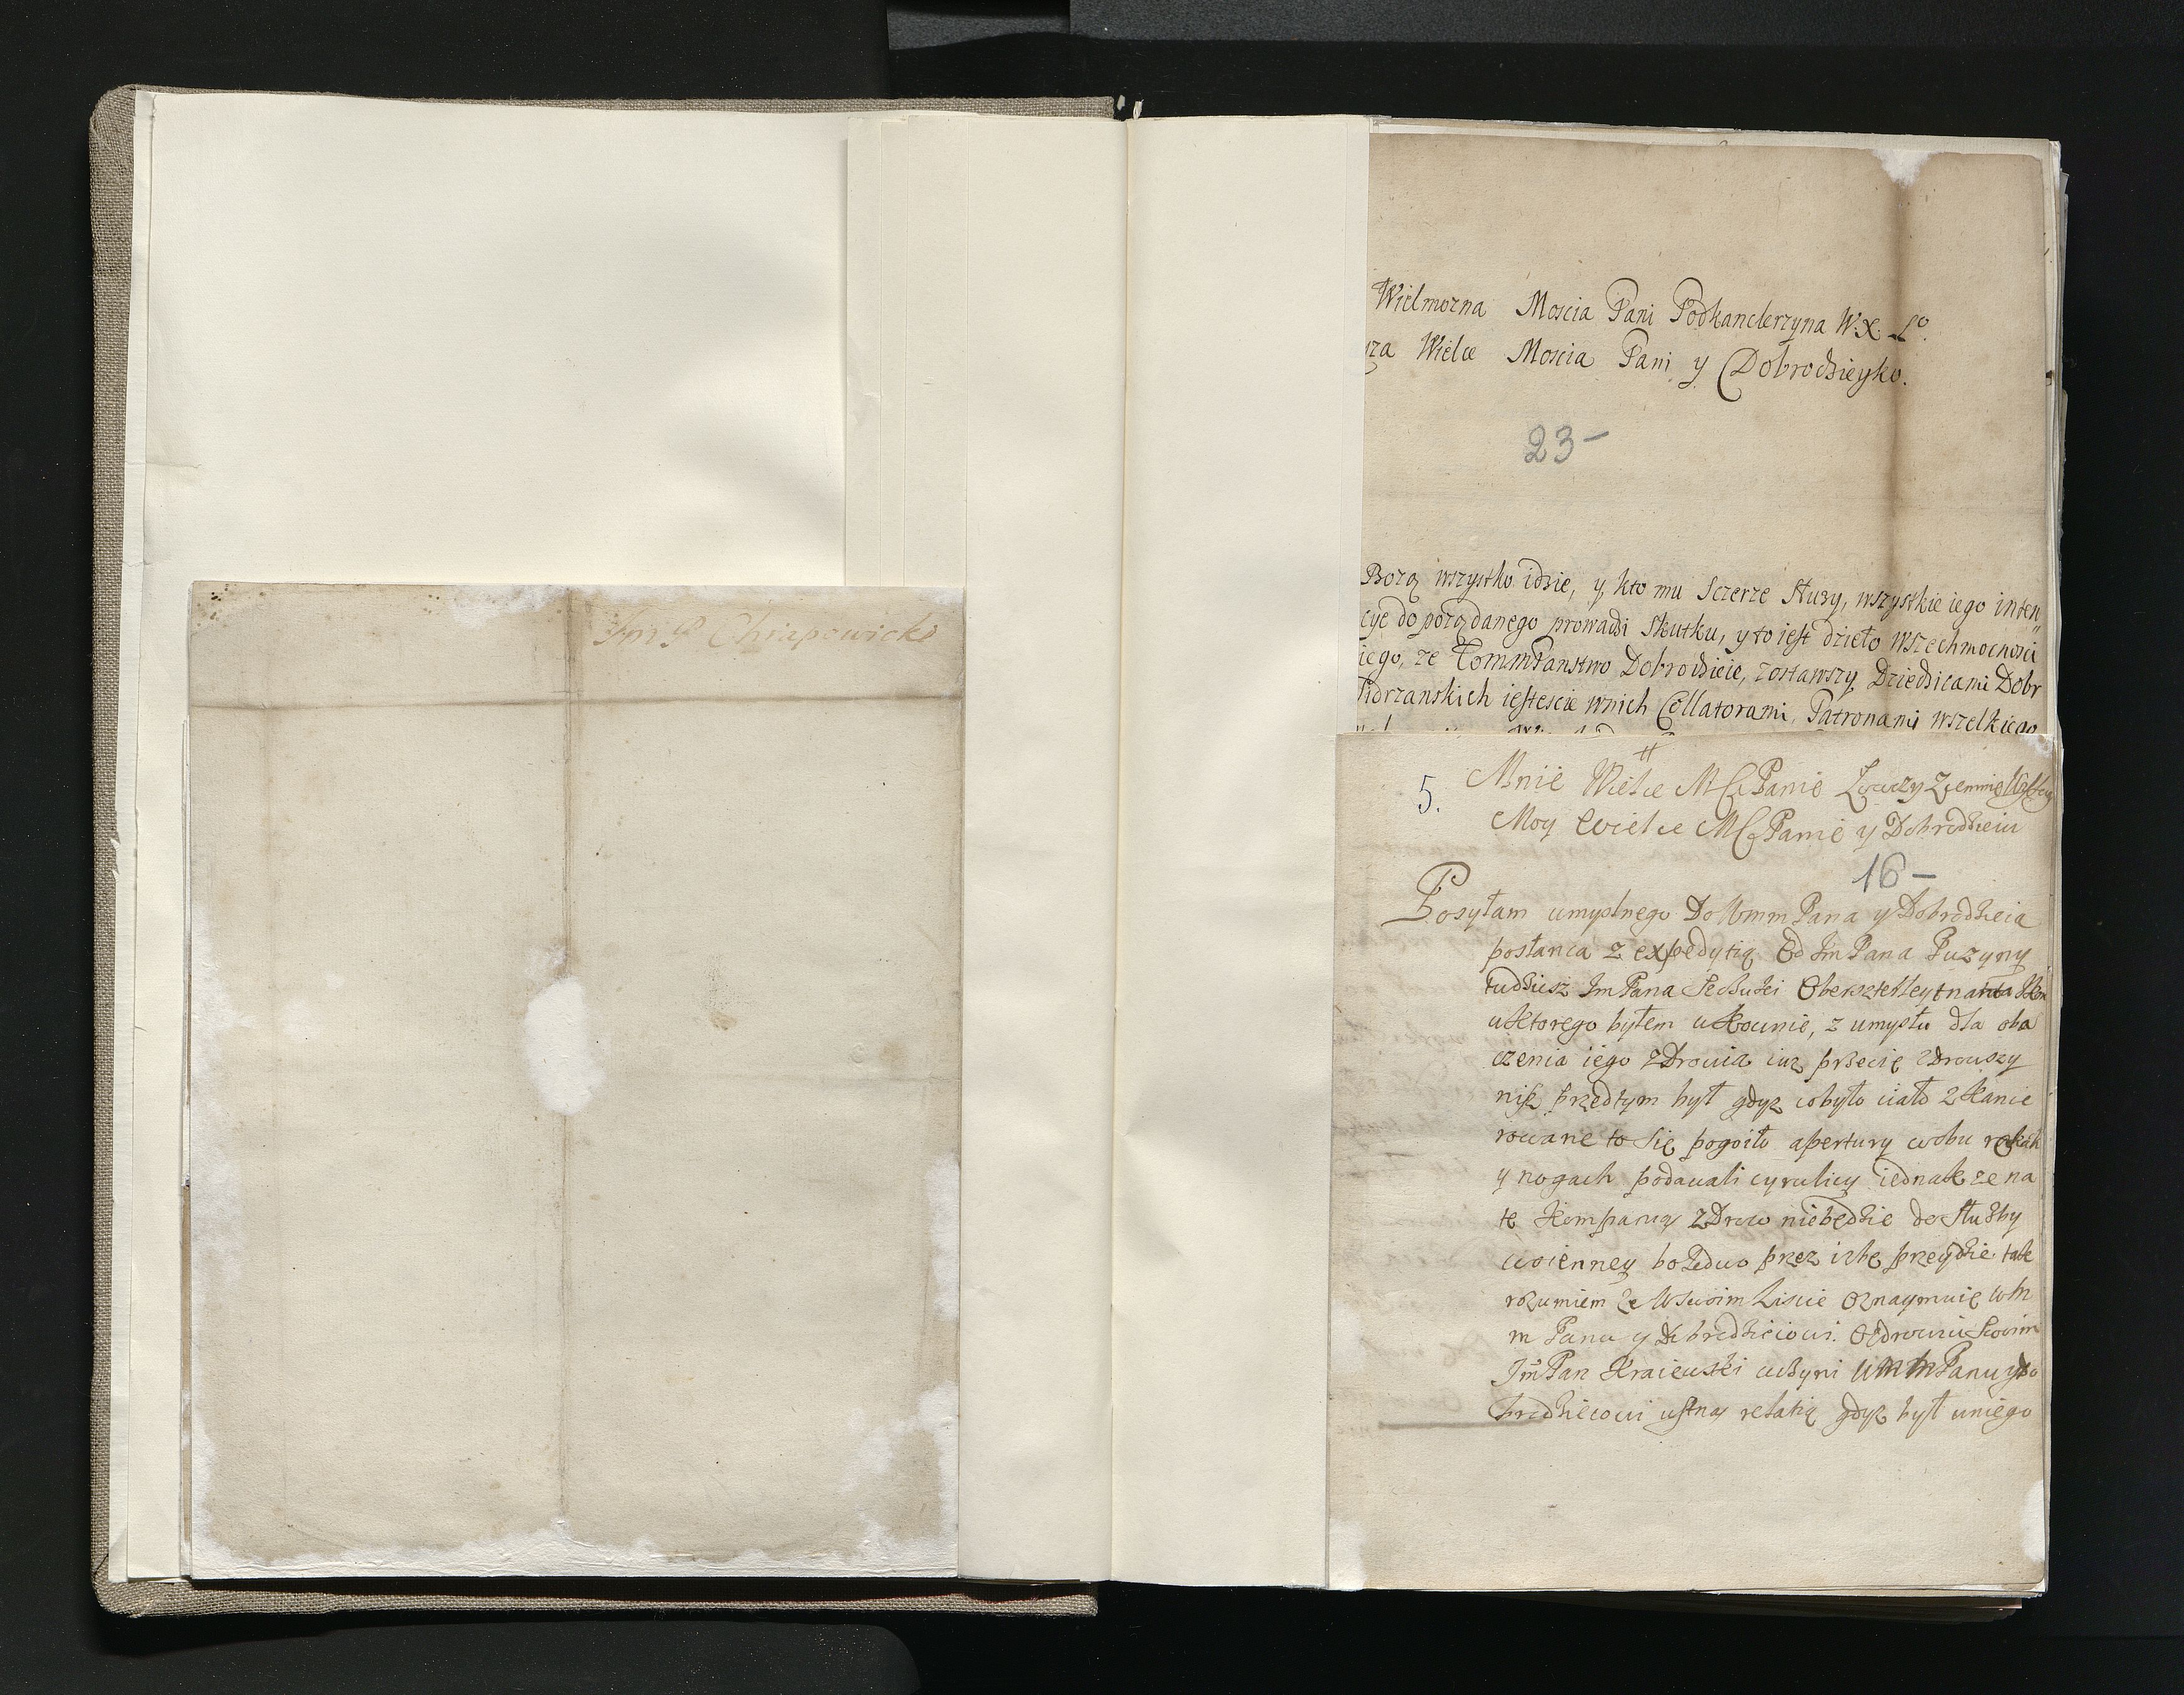 Im P Chrapowicki
Wielmozna Moscia Pani Podkanclerzyna W.X. Lº.
Wielce Moscia Pani y Dobrodzieyko.
23-
Bozą wszystko idzie, y kto mu Sczerze Słuzy, wszystkie iego inten
cye do pożądanego prowadzi Skutku, y to iest dzieło Wszechmocnosci
iego, ze Panstwo Dobrodzieie, zostawszy Dziedzicami Dobr
iestescie wnich Collatorami, Patronami wszelkiego
5.
Mnie Wielce Panie
Moy Wielce Panie y Dobrodzieiu
16-
Posyłam umyslnego Do Wmm Pana y Dobrodzieia
posłanca z expedytią Od Im Pana Puzyny
tudziesz Im Pana
uktorego byłem ukownie, z umysłu dla oba
czenia iego zDrowia iuz przecię zdrowszy
niz przedtym był gdyz cobyło ciało zkanie
rowane to się pogoiło apertury wobu rękach
y nogach podawali cyrulicy iednak ze na
tę Kompanią zDrow niebędzie do słuzby
woienney boledwo przez izbę przeydzie tak
rozumiem ze Wswoim Liscie Oznaymuie Wm
m Panu y Dobrodzieiowi. Ozdrowiu Swoim
Im Pan Kraiewski uczyni Wmm Panu y Do
brodzieiowi ustną relatią gdyz był uniego